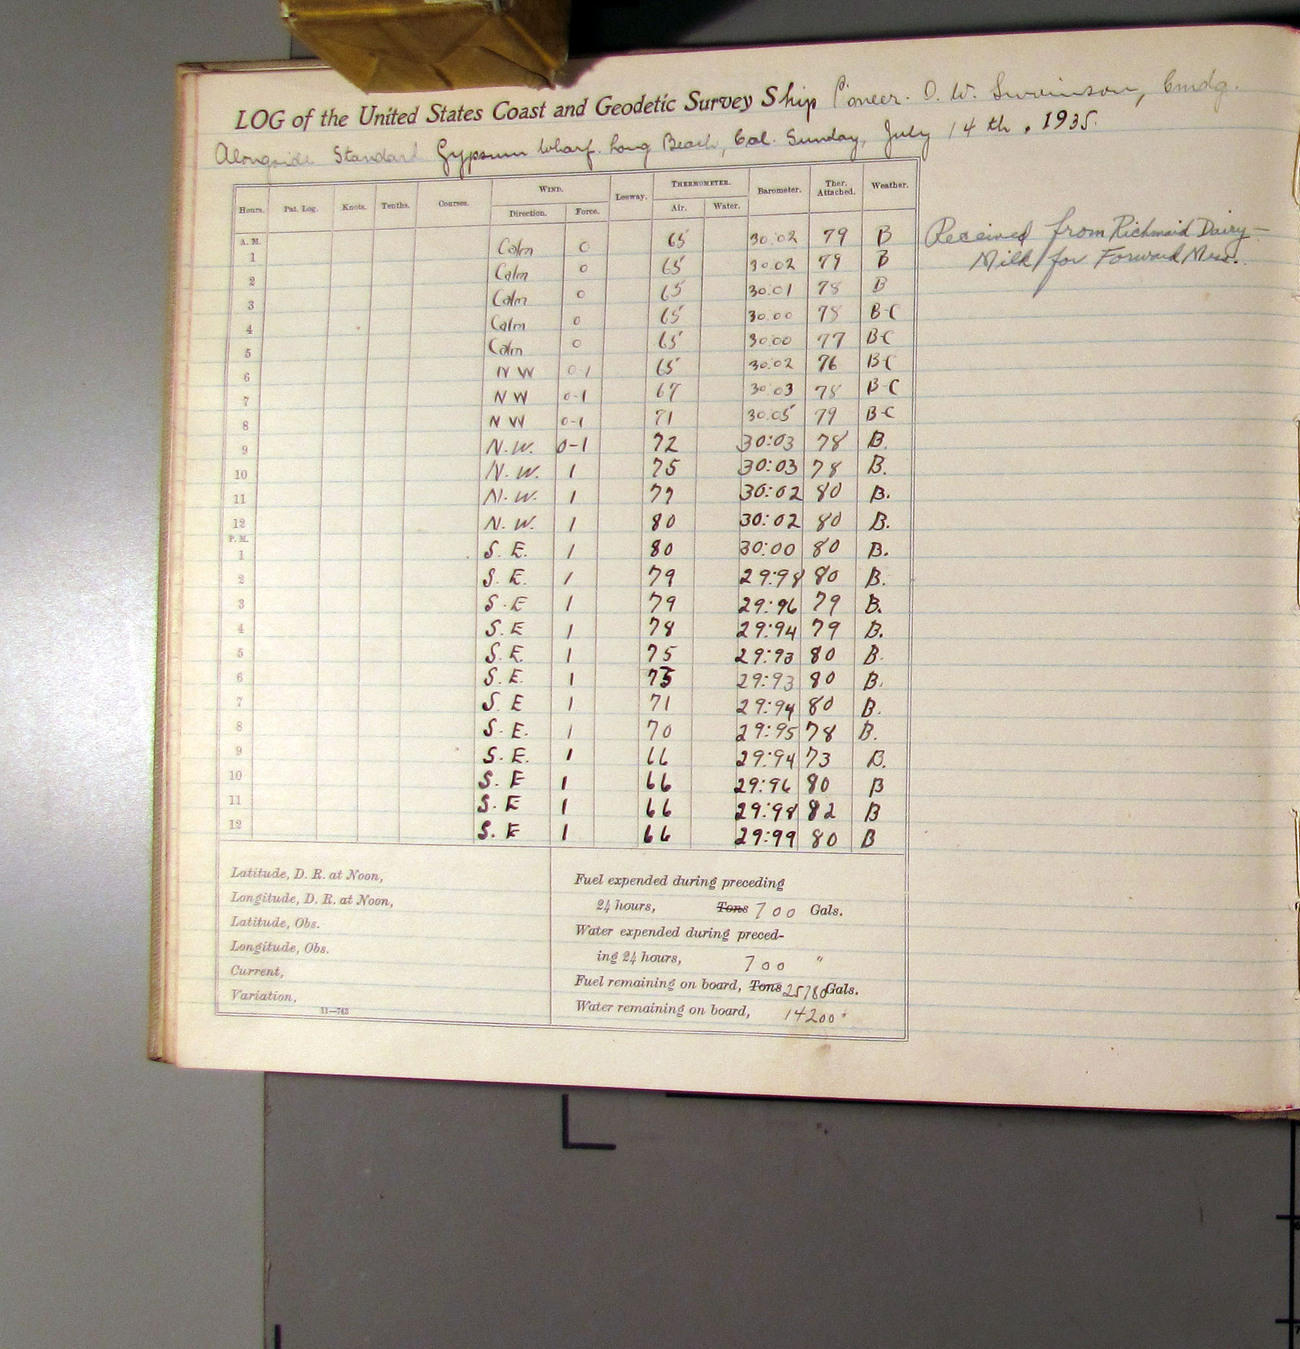 LOG of the United States Coast and Geodetic Survey Ship Pioneer. O. W. Swainson, Cmdg.
Alongside Standard Gypsum Wharf. Long Beach, Cal. Sunday, July 14th, 1935.
Hours. Pat. Log. Knots. Tenths. Courses. WIND. Direction. Force. Leeway. THERMOMETER. Air. Water. Barometer. Ther. Attached. Weather.
A. M.
1 Calm 0 65 30:02 79 B
2 Calm 0 65 30:02 79 B
3 Calm 0 65 30:01 78 B
4 Calm 0 65 30:00 78 B-C
5 Calm 0 65 30:00 77 B-C
6 N W 0-1 65 30:02 76 B-C
7 N W 0-1 67 30:03 78 B-C
8 N W 0-1 71 30:05 79 B-C
9 N.W. 0-1 72 30:03 78 B.
10 N.W. 1 75 30:03 78 B.
11 N.W. 1 77 30:02 80 B.
12 N.W. 1 80 30:02 80 B.
P. M.
1 S. E. 1 80 30:00 80 B.
2 S. E. 1 79 29:98 80 B.
3 S. E 1 79 29:96 79 B.
4 S. E 1 78 29:94 79 B.
5 S. E. 1 75 29:93 80 B.
6 S. E. 1 73 29:93 80 B.
7 S. E 1 71 29:94 80 B.
8 S. E. 1 70 29:95 78 B.
9 S. E. 1 66 29:94 73 B.
10 S. E 1 66 29:96 80 B
11 S. E 1 66 29:98 82 B
12 S. E 1 66 29:99 80 B
Received from Richmaid Dairy—
Milk for Forward Mess.
Latitude, D. R. at Noon,
Longitude, D. R. at Noon,
Latitude, Obs.
Longitude, Obs.
Current,
Variation,
11—743
Fuel expended during preceding
24 hours, Tons 700 Gals.
Water expended during preced-
ing 24 hours, 700 "
Fuel remaining on board, Tons 25780 Gals.
Water remaining on board, 14200 "